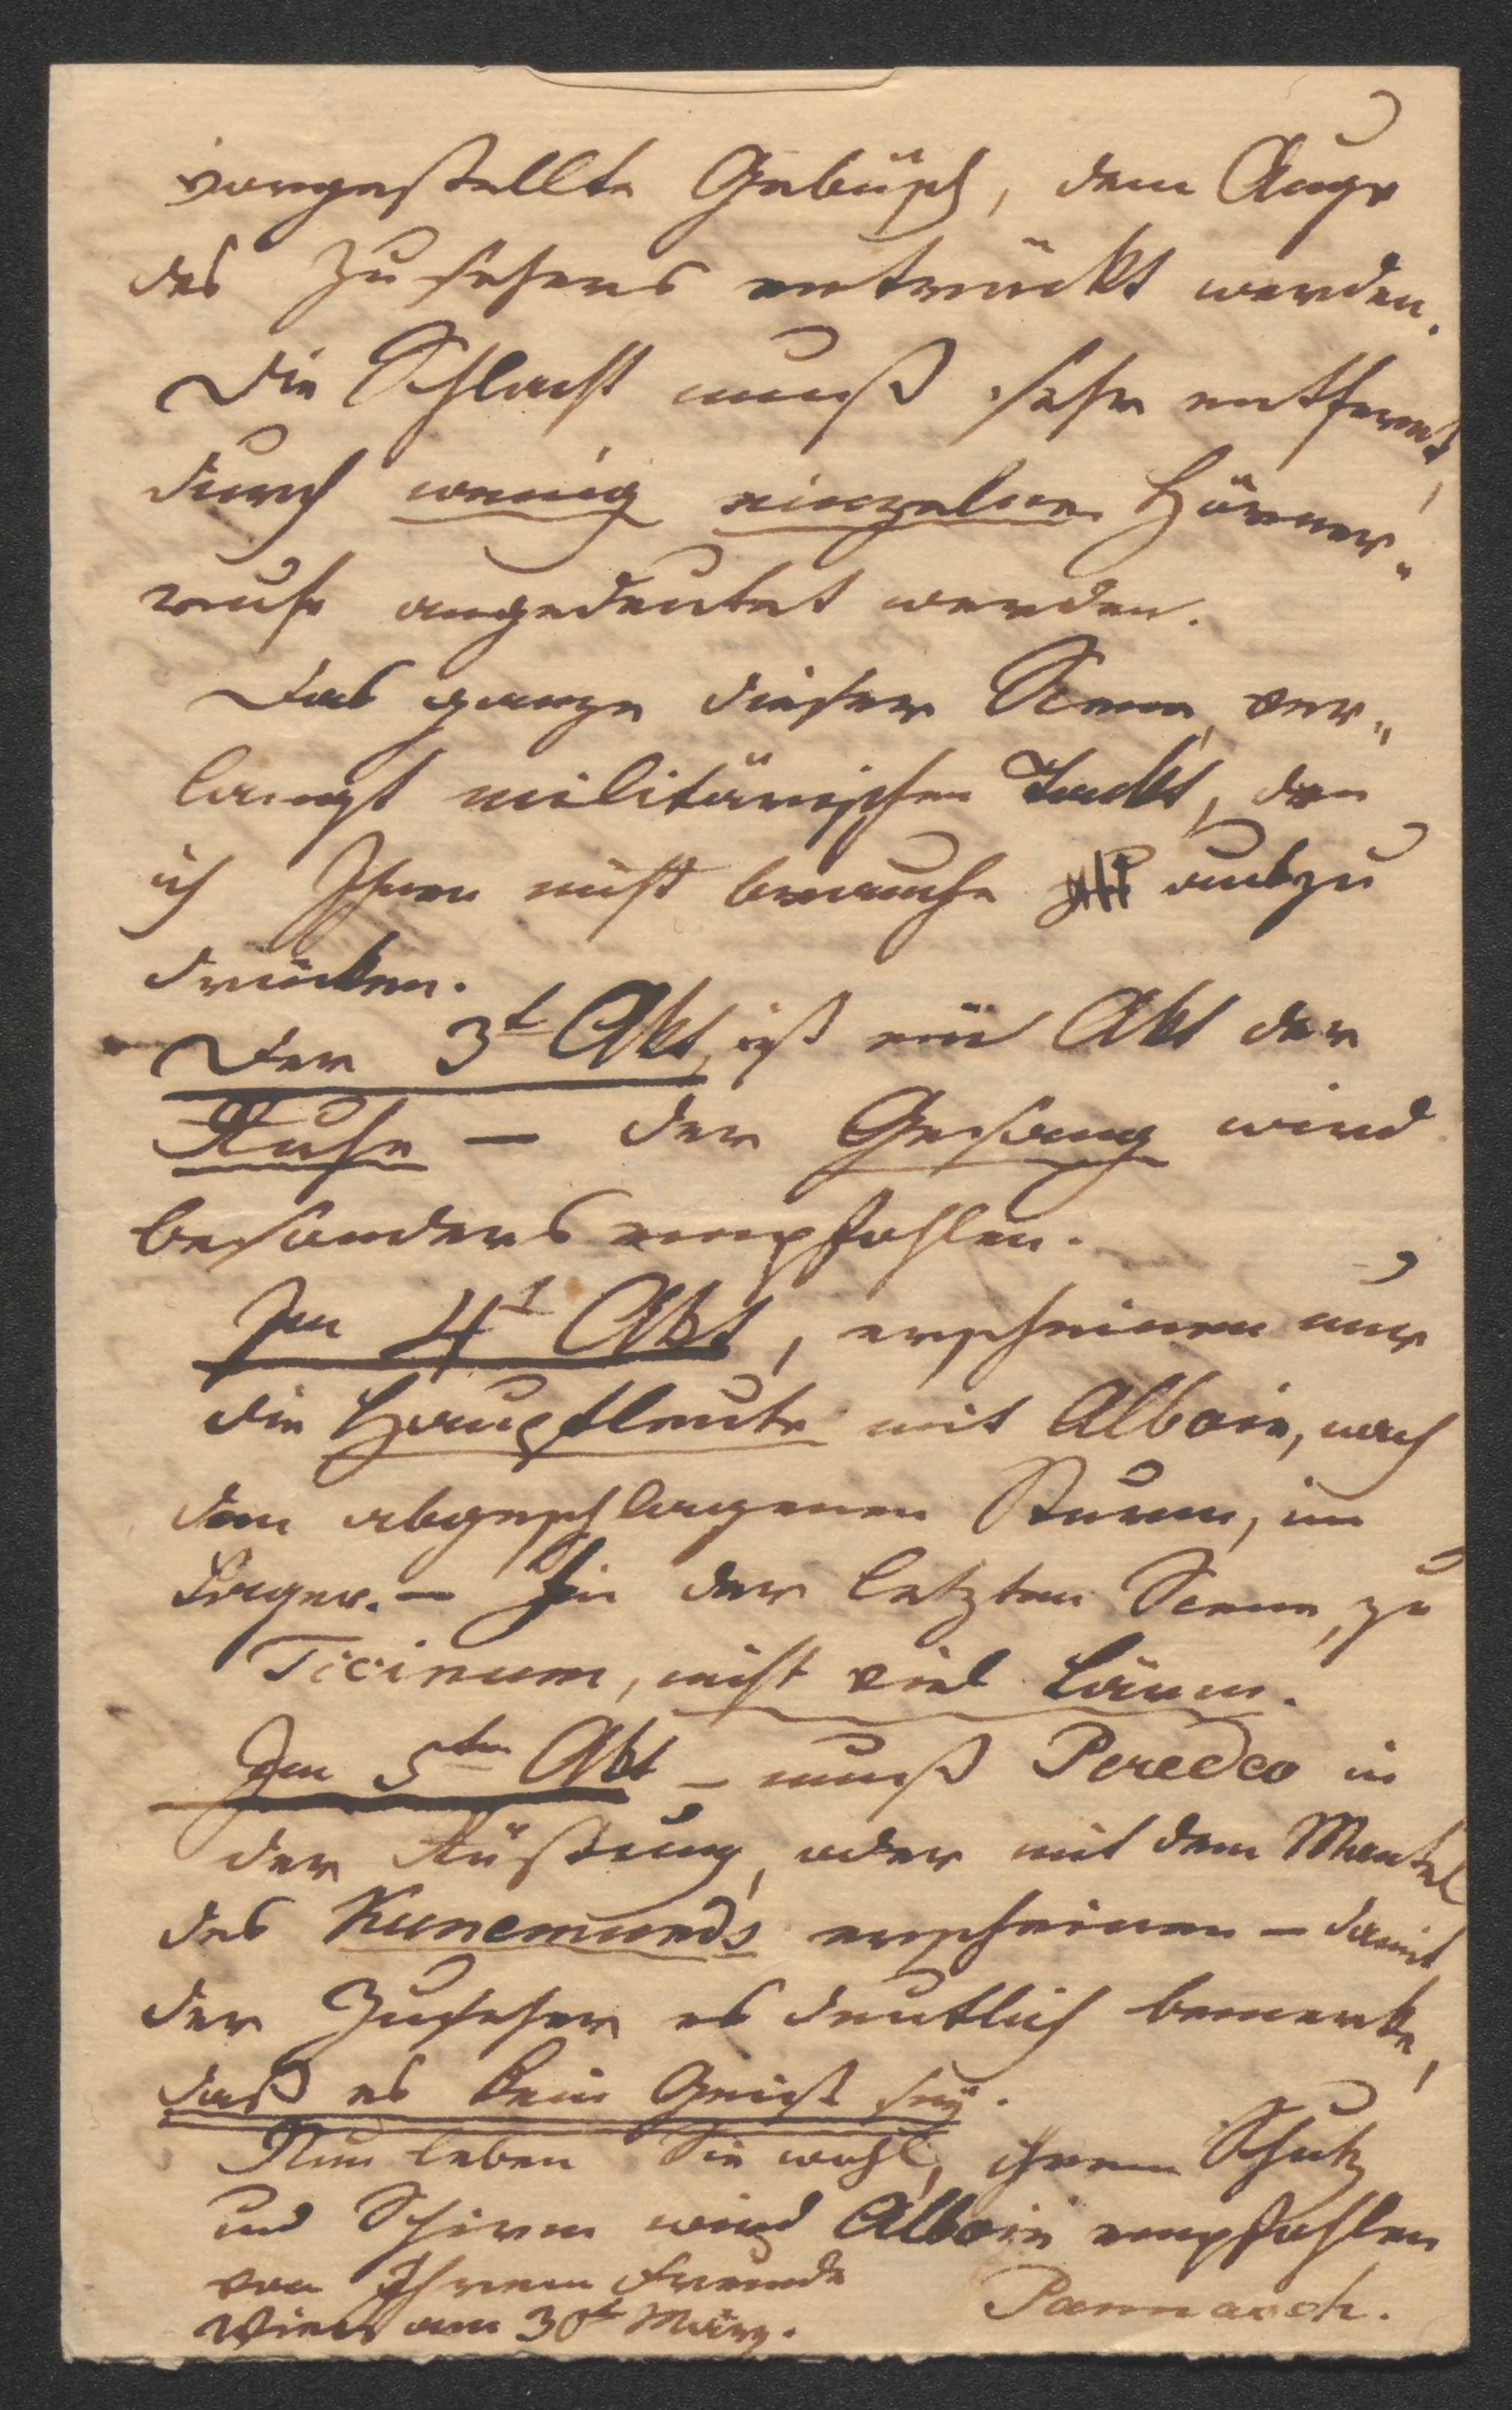 vorgestellte Gebüsch, dem Auge
des Zusehers entrückt werden.
Die Schlacht muß sehr entfernt,
durch wenig einzelne Hörner„
rufe angedeutet werden.
Das ganze dieser Scene, ver„
langt militärischen Tackt, den
ich Ihnen nicht brauche auszu
drücken.
Der 3t Akt, ist ein Akt der
Ruhe – der Gesang wird
besonders empfohlen.
Im 4t Akt, erscheinen nur
die Hauptleute mit Alboin, nach
dem abgeschlagenen Sturm, im
Lager. – In der letzten Scene, zu
Ticinum, nicht viel Lärm.
Im 5ten Akt – muß Peredeo in
der Rüstung, oder mit dem Mantel
des Kunemunds erscheinen – damit
der Zuseher es deutlich bemerke,
daß es kein Geist sey.
Nun leben Sie wohl, ihrem Schutz
und Schirm wird Alboin empfohlen
von Ihrem Freunde
Pannasch.
Wien am 30t März.